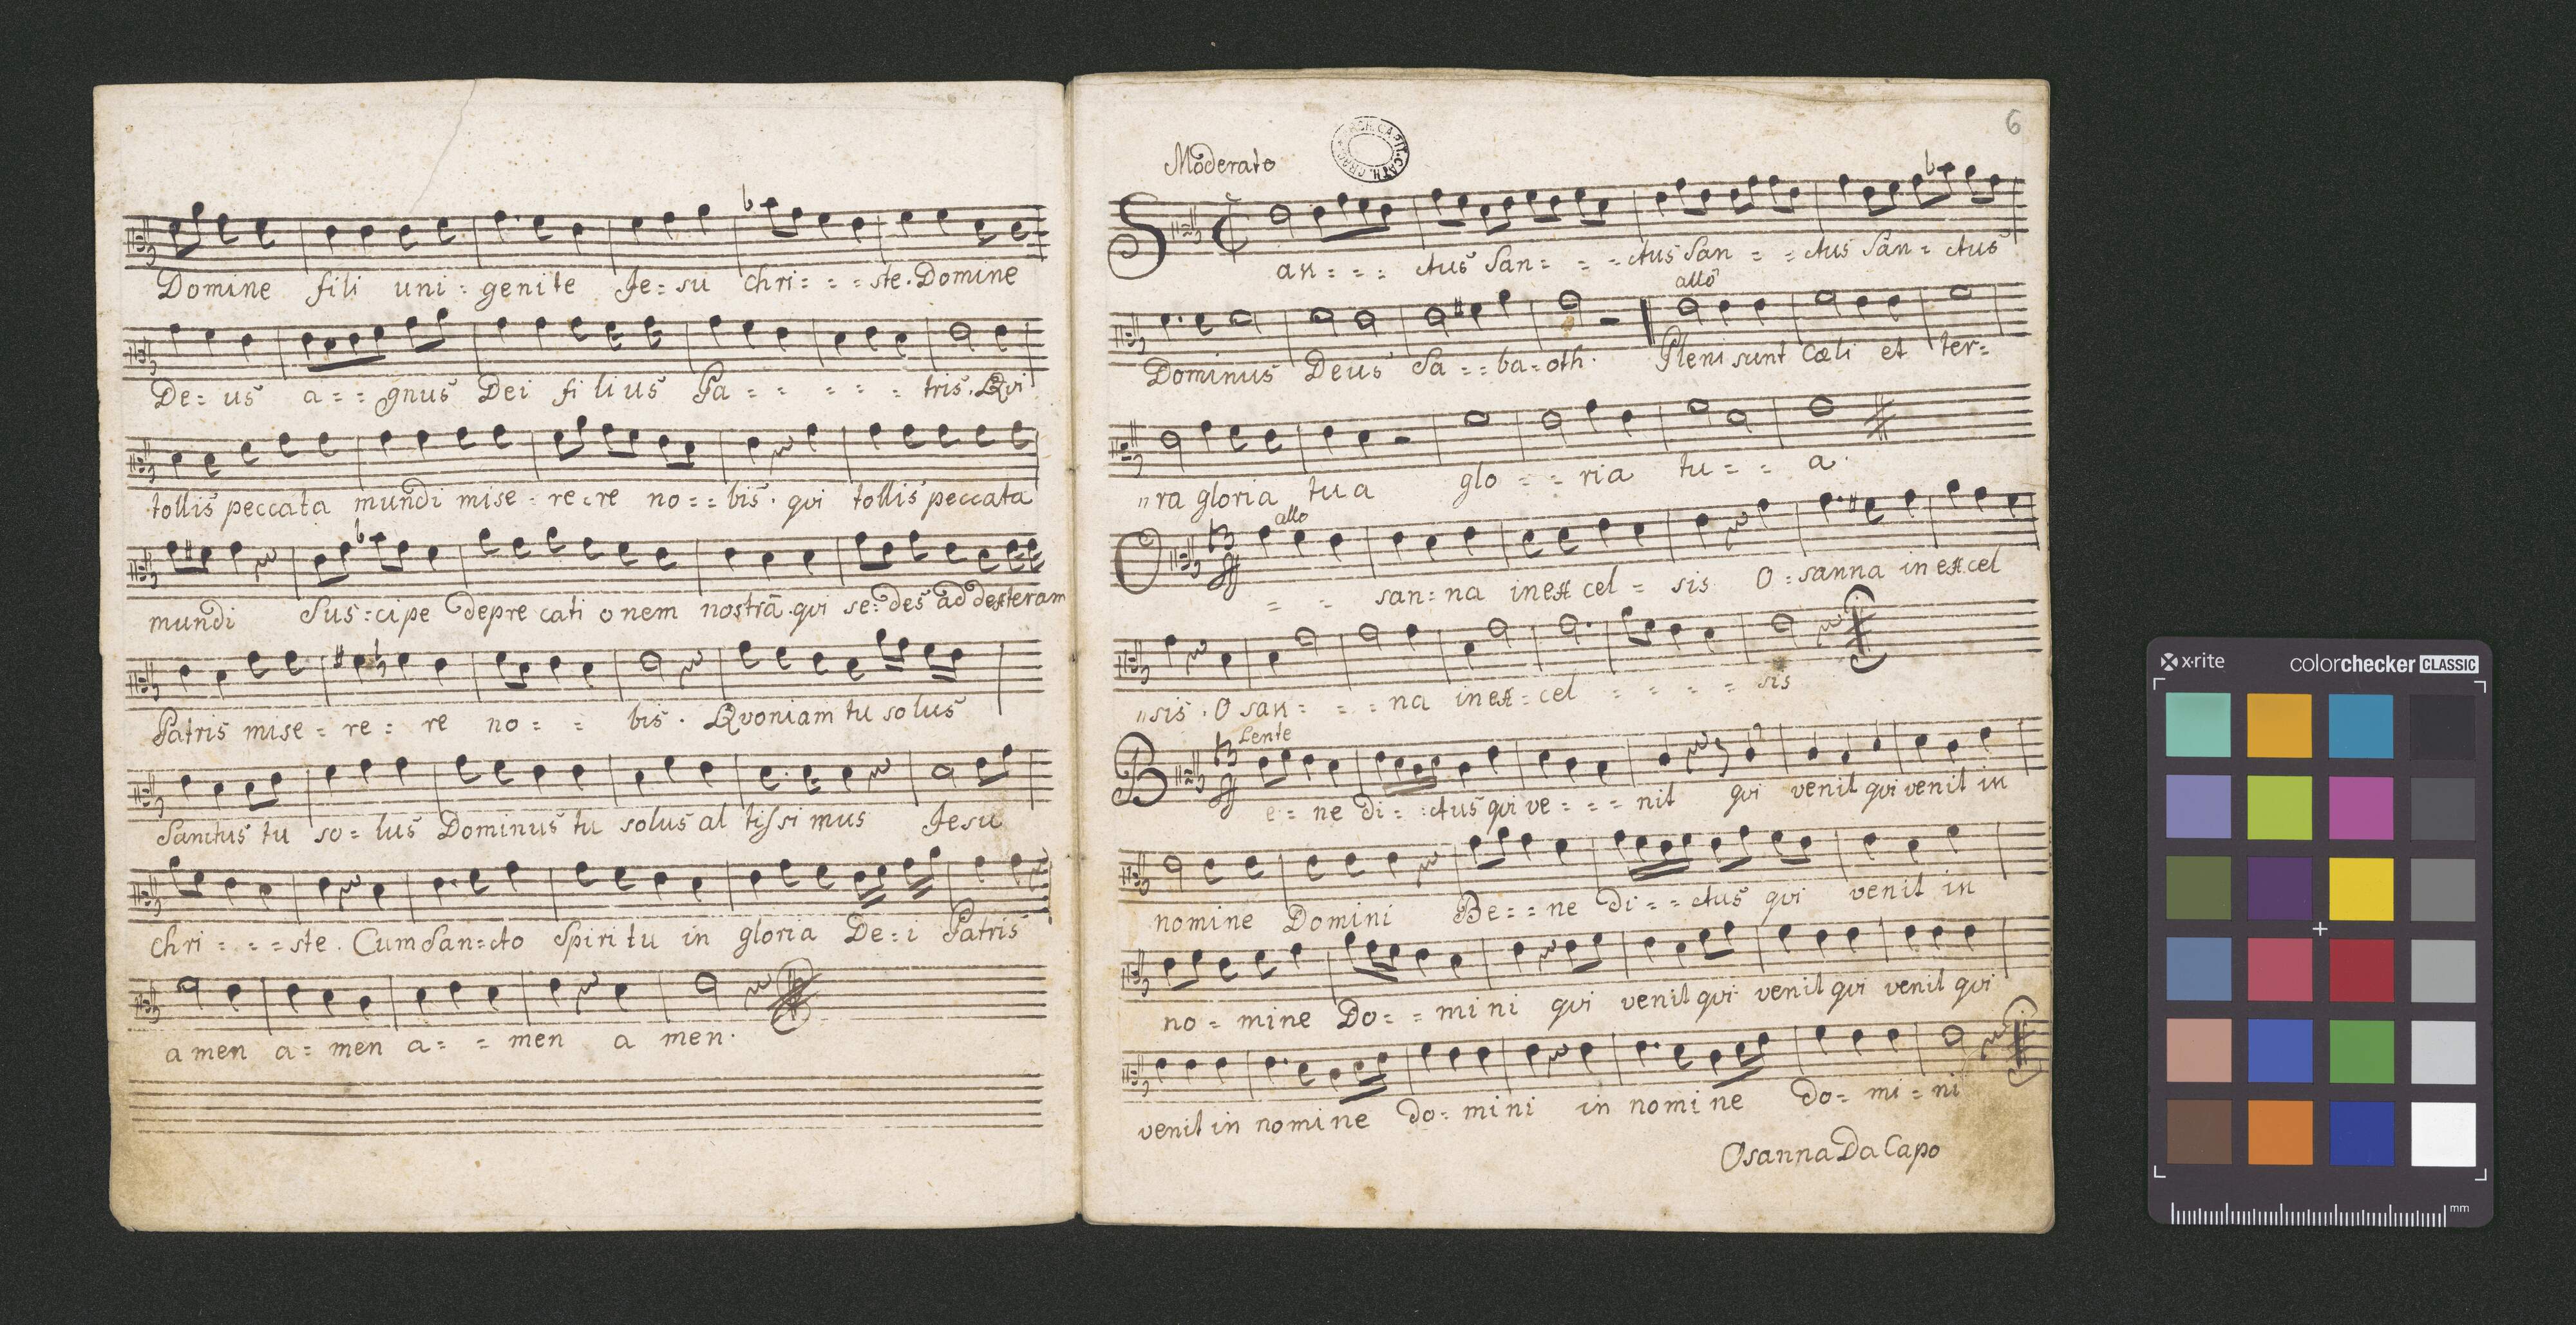 Domine fili uni: genite Je=su chri: = =ste. Domine
De= us a= = gnus Dei filius Pa = = = = = tris. Qvi
tollis peccata mundi mise = re=re no==bis. qvi tollis peccata
mundi Sus:cipe deprecationem nostrã. qvi se=des ad dexteram
Patris mise = re = re no= = bis. Qvoniam tu solus
Sanctus tu so=lus Dominus tu solus altissimus Jesu
chri = = =ste. Cum San=cto Spiritu in gloria De=i Patris
amen a= men a= = men a men.
6
Moderato
San= = = ctus San= = = ctus San = = ctus San= ctus
allo
Dominus Deus Sa==ba=oth. Pleni sunt Cæli et ter=
"ra gloria tua glo = = ria tu= = a.
allo
O = = san=na in excel = sis O=sanna in excel
"sis. O san= = =na in ex=cel = = = = sis
Lente
Be= ne di= =ctus qvi ve= = = nit qvi venit qvi venit in
nomine Domini Be= = ne di= = ctus qvi venit in
no= mine Do= = mini qvi venit qvi venit qvi venit qvi
venit in nomine do= mini in nomine do= mi = ni
Osanna Da Capo
x·rite colorchecker CLASSIC
mm